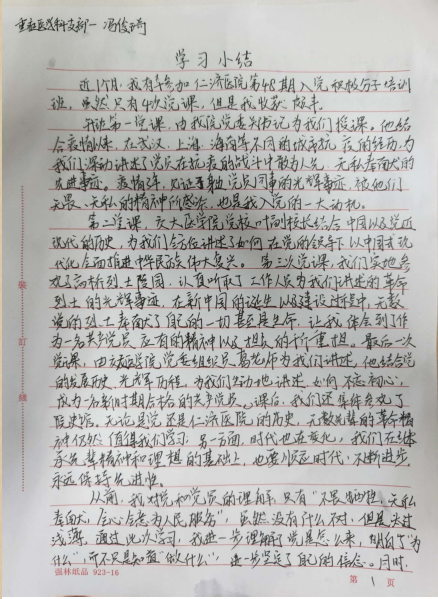 重症医学科支部一 冯俊
学习小结
近1个月,我有幸参加仁济医院第48期入党积极分子培训
班,虽然只有4次党课,但是我收获颇丰。
第一堂课,由我院党委书记为我们授课。他结
合疫情以来,在武汉、上海、海南等不同的城市抗疫的经历,为
我们生动讲述了党员在抗疫的战斗中敢为人先、无私奉献的
先进事迹。疫情期,见证了身边党员同事的光辉事迹,被他们
无畏、无私的精神所感染,也是我入党的一大动机。
第二堂课,交大医学院党校叶副校长结合中国以及党近
现代的历史,为我们全面讲述了如何在党的领导下以中国式现
代化全面推进中华民族伟大复兴。第三次党课,我们实地参
观了高桥烈士陵园,认真听取了工作人员为我们讲述的革命
烈士的光辉事迹,在新中国的诞生以及建设过程中,无数
的烈士奉献了自己的一切甚至是生命,让我体会到了作
为一名共产党员应有的精神以及担负的千斤重担。最后一次
党课,由我医院党委组织员葛老师为我们讲述,他结合党
的发展历史、光辉历程,为我们生动地讲述,如何不忘初心,
成为一名新时期合格的共产党员。课后,我们还集体参观了
院史馆。无论是党还是仁济医院的历史,无数先辈的革命精
神仍然值得我们学习;另一方面,时代也在变化,我们在继
承先辈精神和理想的基础上,也要顺应时代,不断进步,
永远保持先进性。
从前,我对党和党员的理解,只有“不畏牺牲、无私
奉献,全心全意为人民服务”,虽然没有什么不对,但是太过
浅薄。通过此次学习,我进一步理解了党是怎么来,明白了“为
什么”,而不只是知道“做什么”,进一步坚定了自己的信念。同时,
装
订
线
强林纸品 923-16
第 1 页